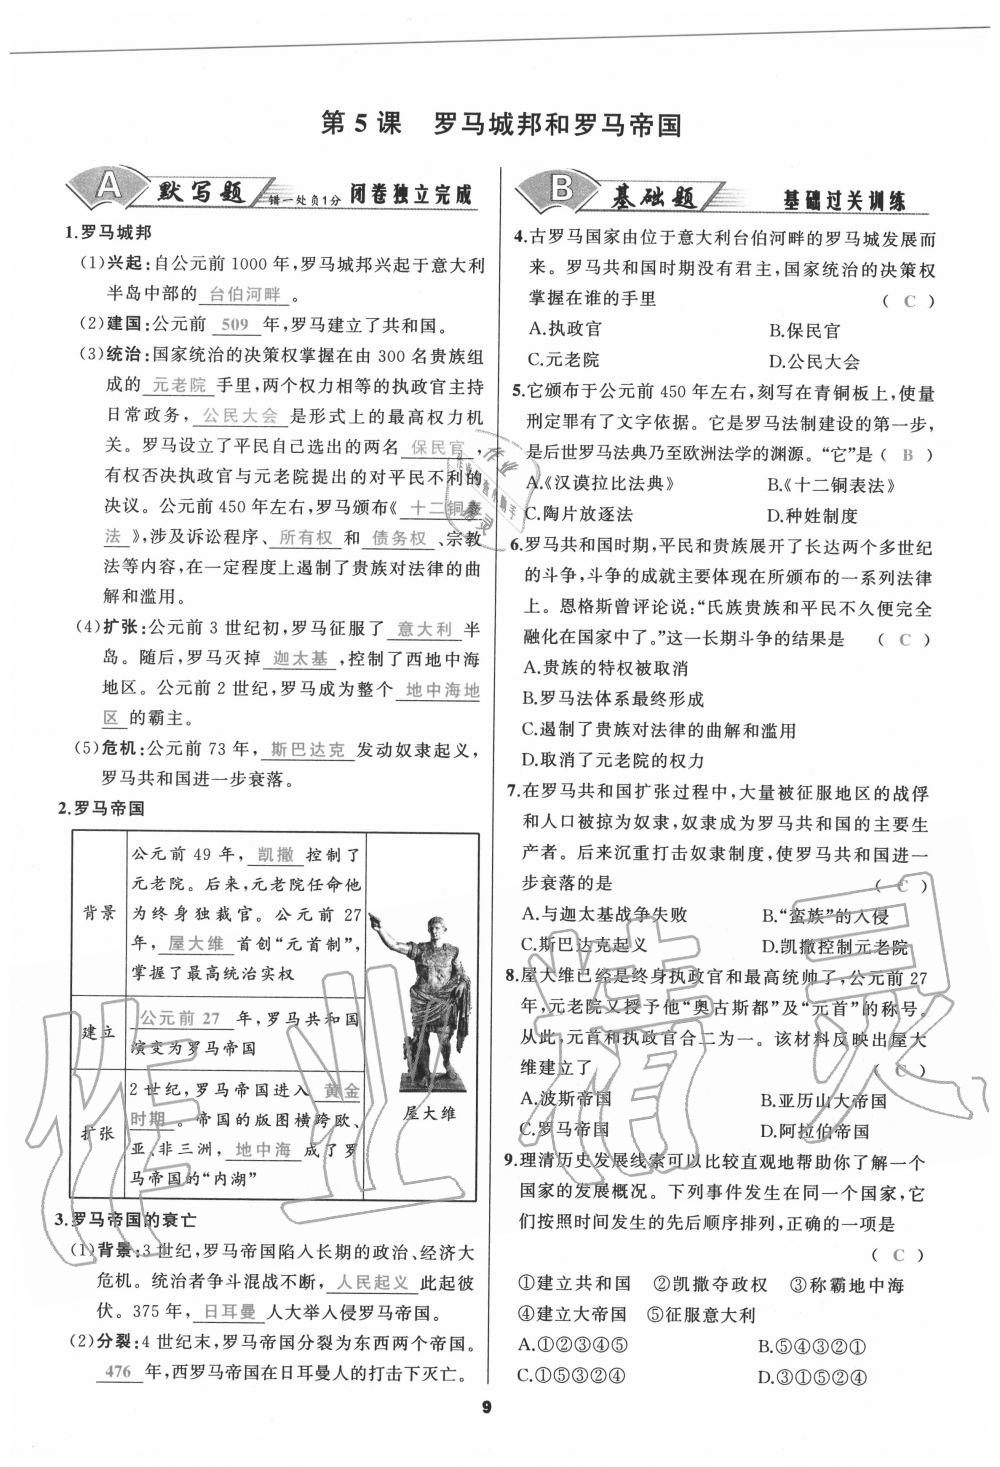 第5课　罗马城邦和罗马帝国
A 默写题 错一处负1分 闭卷独立完成
1.罗马城邦
(1)兴起:自公元前1000年,罗马城邦兴起于意大利
半岛中部的 台伯河畔 。
(2)建国:公元前 509 年,罗马建立了共和国。
(3)统治:国家统治的决策权掌握在由300名贵族组
成的 元老院 手里,两个权力相等的执政官主持
日常政务, 公民大会 是形式上的最高权力机
关。罗马设立了平民自己选出的两名 保民官 ,
有权否决执政官与元老院提出的对平民不利的
决议。公元前450年左右,罗马颁布《 十二铜表
法 》,涉及诉讼程序、 所有权 和 债务权 、宗教
法等内容,在一定程度上遏制了贵族对法律的曲
解和滥用。
(4)扩张:公元前3世纪初,罗马征服了 意大利 半
岛。随后,罗马灭掉 迦太基 ,控制了西地中海
地区。公元前2世纪,罗马成为整个 地中海地
区 的霸主。
(5)危机:公元前73年, 斯巴达克 发动奴隶起义,
罗马共和国进一步衰落。
2.罗马帝国
背景
公元前49年, 凯撒 控制了
元老院。后来,元老院任命他
为终身独裁官。公元前27
年, 屋大维 首创“元首制”,
掌握了最高统治实权
建立
公元前27 年,罗马共和国
演变为罗马帝国
扩张
2世纪,罗马帝国进入 黄金
时期 。帝国的版图横跨欧、
亚、非三洲, 地中海 成了罗
马帝国的“内湖”
屋大维
3.罗马帝国的衰亡
(1)背景:3世纪,罗马帝国陷入长期的政治、经济大
危机。统治者争斗混战不断, 人民起义 此起彼
伏。375年, 日耳曼 人大举入侵罗马帝国。
(2)分裂:4世纪末,罗马帝国分裂为东西两个帝国。
476 年,西罗马帝国在日耳曼人的打击下灭亡。
B 基础题 基础过关训练
4.古罗马国家由位于意大利台伯河畔的罗马城发展而
来。罗马共和国时期没有君主,国家统治的决策权
掌握在谁的手里 ( C )
A.执政官 B.保民官
C.元老院 D.公民大会
5.它颁布于公元前450年左右,刻写在青铜板上,使量
刑定罪有了文字依据。它是罗马法制建设的第一步,
是后世罗马法典乃至欧洲法学的渊源。“它”是 ( B )
A.《汉谟拉比法典》 B.《十二铜表法》
C.陶片放逐法 D.种姓制度
6.罗马共和国时期,平民和贵族展开了长达两个多世纪
的斗争,斗争的成就主要体现在所颁布的一系列法律
上。恩格斯曾评论说:“氏族贵族和平民不久便完全
融化在国家中了。”这一长期斗争的结果是 ( C )
A.贵族的特权被取消
B.罗马法体系最终形成
C.遏制了贵族对法律的曲解和滥用
D.取消了元老院的权力
7.在罗马共和国扩张过程中,大量被征服地区的战俘
和人口被掠为奴隶,奴隶成为罗马共和国的主要生
产者。后来沉重打击奴隶制度,使罗马共和国进一
步衰落的是 ( C )
A.与迦太基战争失败 B.“蛮族”的入侵
C.斯巴达克起义 D.凯撒控制元老院
8.屋大维已经是终身执政官和最高统帅了,公元前27
年,元老院又授予他“奥古斯都”及“元首”的称号。
从此,元首和执政官合二为一。该材料反映出屋大
维建立了 ( C )
A.波斯帝国 B.亚历山大帝国
C.罗马帝国 D.阿拉伯帝国
9.理清历史发展线索可以比较直观地帮助你了解一个
国家的发展概况。下列事件发生在同一个国家,它
们按照时间发生的先后顺序排列,正确的一项是
( C )
①建立共和国 ②凯撒夺政权 ③称霸地中海
④建立大帝国 ⑤征服意大利
A.①②③④⑤ B.⑤④③②①
C.①⑤③②④ D.③①⑤②④
9
作业精灵